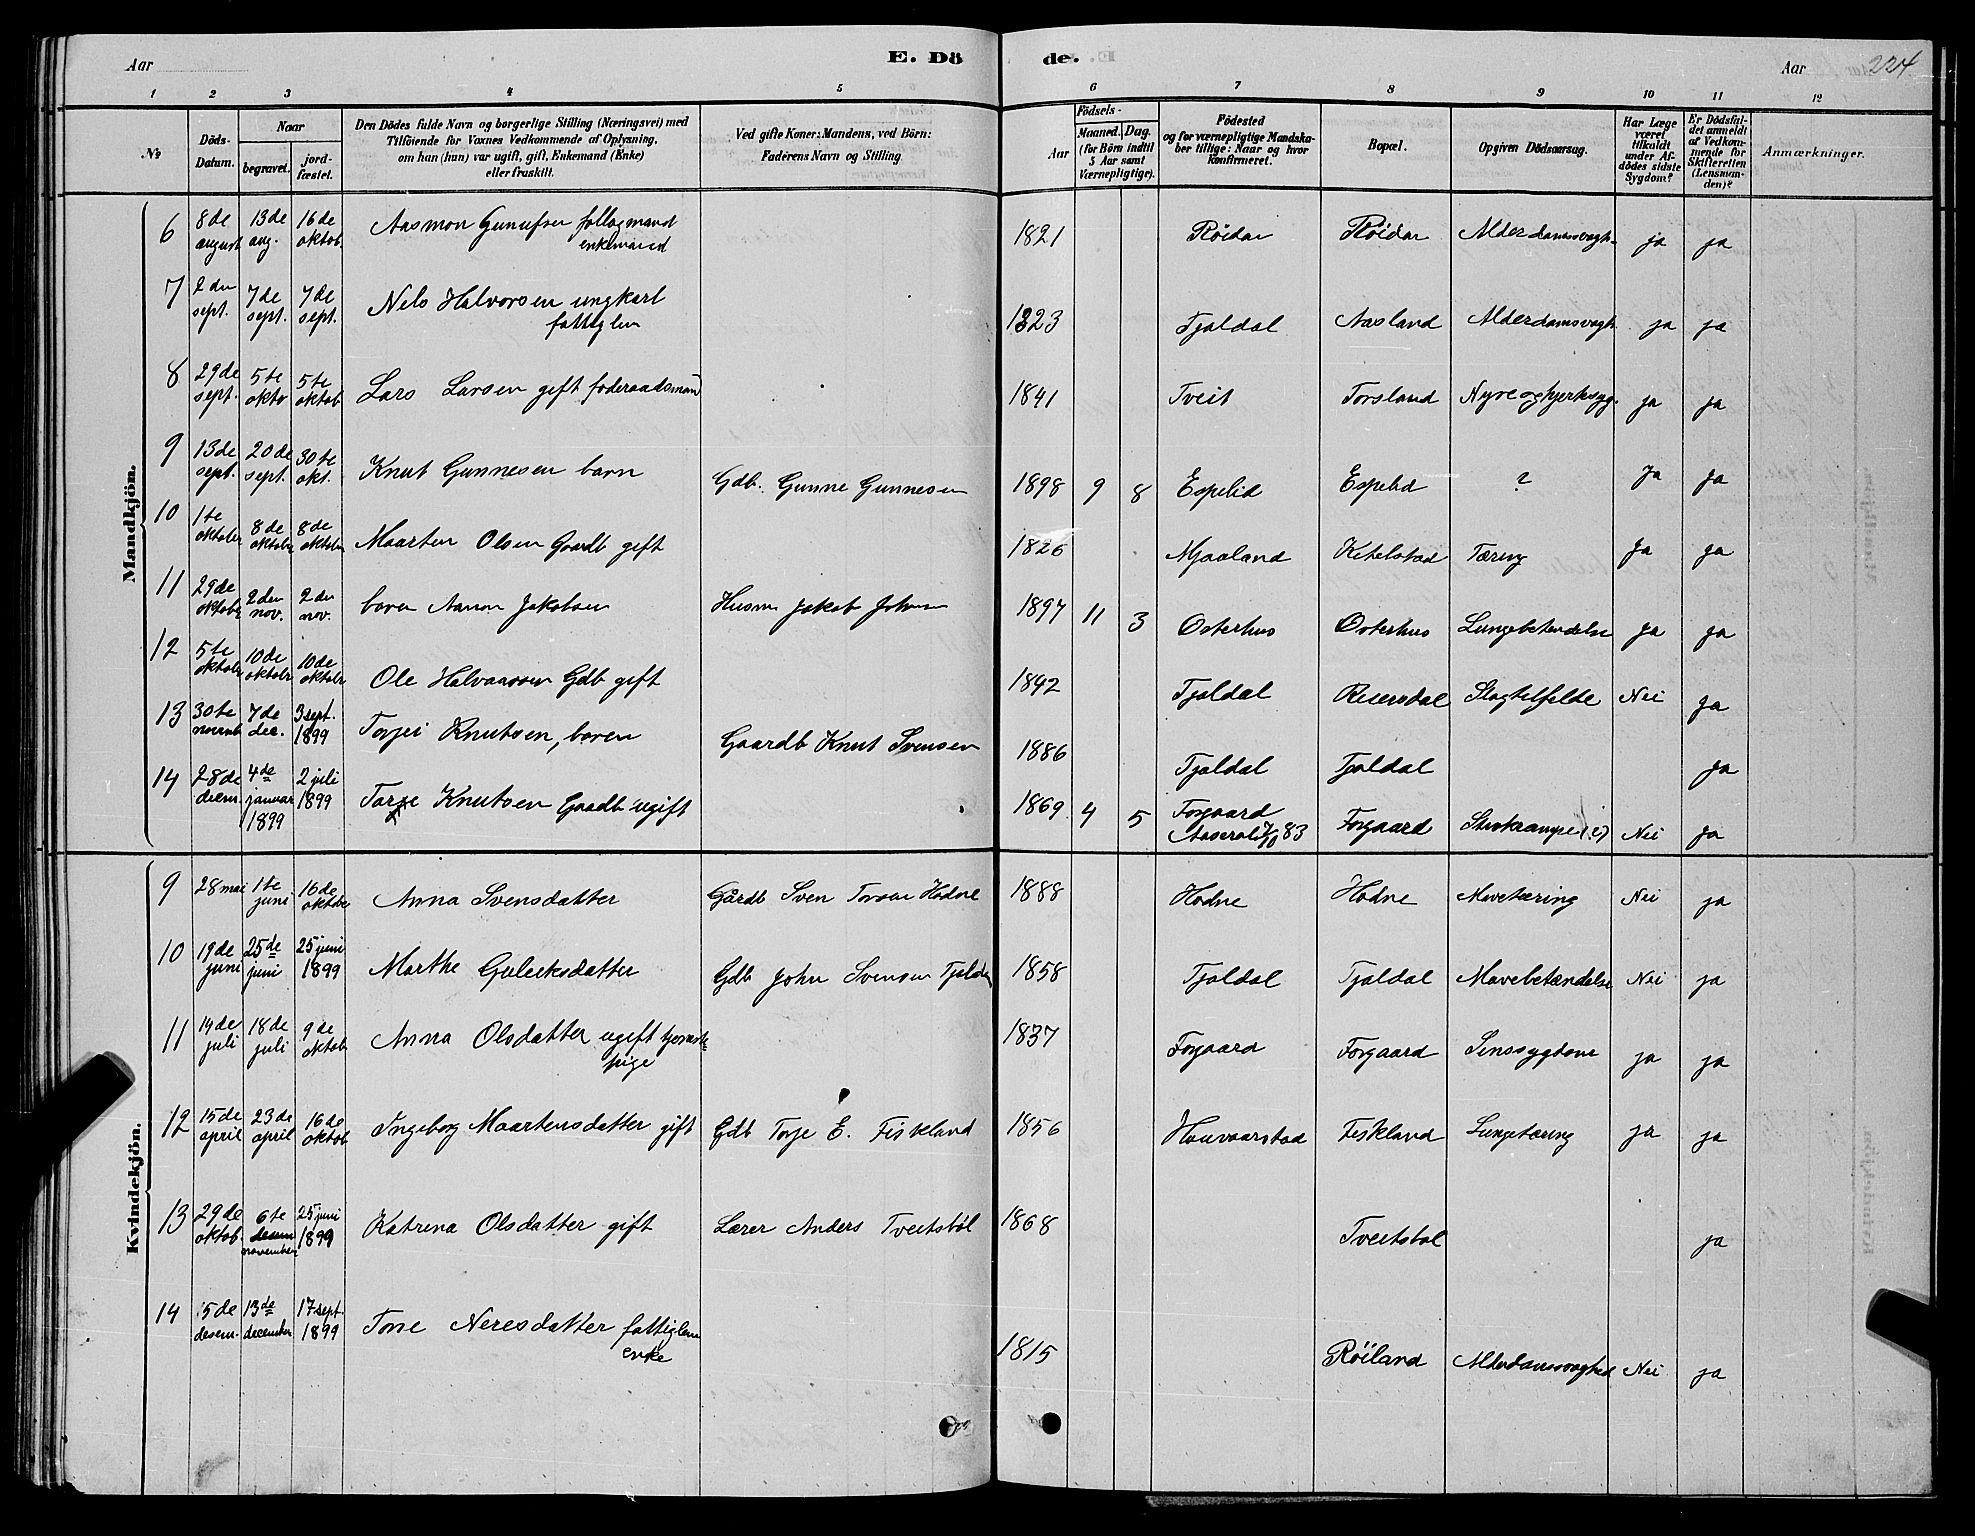 Aar
E. Dö
de.
Aar
224
1 2 3 4 5 6 7 8 9 10 11 12
No
Döds-Datum.
Naar
begravet.
jord-fæstet.
Den Dödes fulde Navn og borgerlige Stilling (Næringsvei) med
Tilföiende for Voxnes Vedkommende af Oplysning,
om han (hun) var ugift, gift, Enkemand (Enke)
eller fraskilt.
Ved gifte Koner: Mandens, ved Börn:
Faderens Navn og Stilling
Födsels-
Aar
Maaned. Dag.
(for Börn indtil
5 Aar samt
Værnepligtige).
Födested
og for værnepligtige Mandska-
ber tillige: Naar og hvor
Konfirmeret.
Bopæl.
Opgiven Dödsaarsag.
Har Læge
været
tilkaldt
under Af-
dödes sidste
Sygdom?
Er Dödsfal-
det anmeldt
af Vedkom-
mende for
Skifteretten
(Lensman-
den)?
Anmærkninger.
Mandkjön.
6 8de august 13de aug. 16de oktob. Aasmon Gunufsen enkemand 1821 Röidar Röidar Alderdomssvagh. ja ja
7 2den sept. 7de sept. 7de sept. Nels Halvorsen ungkarl fattiglem 1823 Tjaldal Aasland Alderdomsvagh. ja ja
8 29de sept. 5te oktob 5te oktob Lars Larsen gift foderaadsmand 1841 Tveit Torsland Nyre og hjertesyg. ja ja
9 13de sept. 20de sept. 30te okt. Knut Gunnesen barn Gdb. Gunne Gunnesen 1898 9 8 Espelid Espelid ? Ja Ja
10 1te oktober 8de oktober 8de oktober Maarten Olsen Gaardb gift 1826 Mjaaland Ketelstad Tæring Ja ja
11 29de oktober 2den nov. 2den nov. barn Aanon Jakobsen Husm Jakob Johnsen 1897 11 3 Osterhus Osterhus Lungebetændelse ja ja
12 5te oktober 10de oktober 10de oktober Ole Halvaarsen Gdb gift 1842 Tjaldal Reiersdal Slagtilfelde Nei Ja
13 30te novemb 7de dec. 3 sept. 1899 Torjei Knutsen, barn Gaardb Knut Svensen 1886 Tjaldal Tjaldal ja
14 28de decem. 4de januar 1899 2 juli 1899 Torje Knutsen Gaardb ugift 1869 4 5 Forgaard Aaseral 7/10 83 Forgaard (?) Nei ja
Kvindekjön.
9 28 mai 1te juni 16de oktober Anna Svensdatter Gårdb Sven Hodne 1888 Hodne Hodne Mavetæring Nei ja
10 19de juni 25de juni 25 juni 1899 Marthe Guleeksdatter Gdb John Svensen Tjaldal 1858 Tjaldal Tjaldal Mavebetændelse Nei ja
11 14de juli 18de juli 9de oktob Anna Olsdatter ugift tjeneste pige 1837 Forgaard Forgaard Sinssygdom ja ja
12 15de april 23de april 16de oktob Ingeborg Maartensdatter gift Gdb Torje E. Fiskland 1856 Houvaarstad Fiskland Lungetæring ja ja
13 29de oktob. 6te november 25 juni 1899 Katrena Olsdatter gift Lærer Anders Tveitsböl 1868 Tveitsbøl ja
14 5de desem. 13de december 17 sept. 1899 Tone Neresdatter fattiglem enke 1815 Röiland Alderdomssvaghed Nei ja